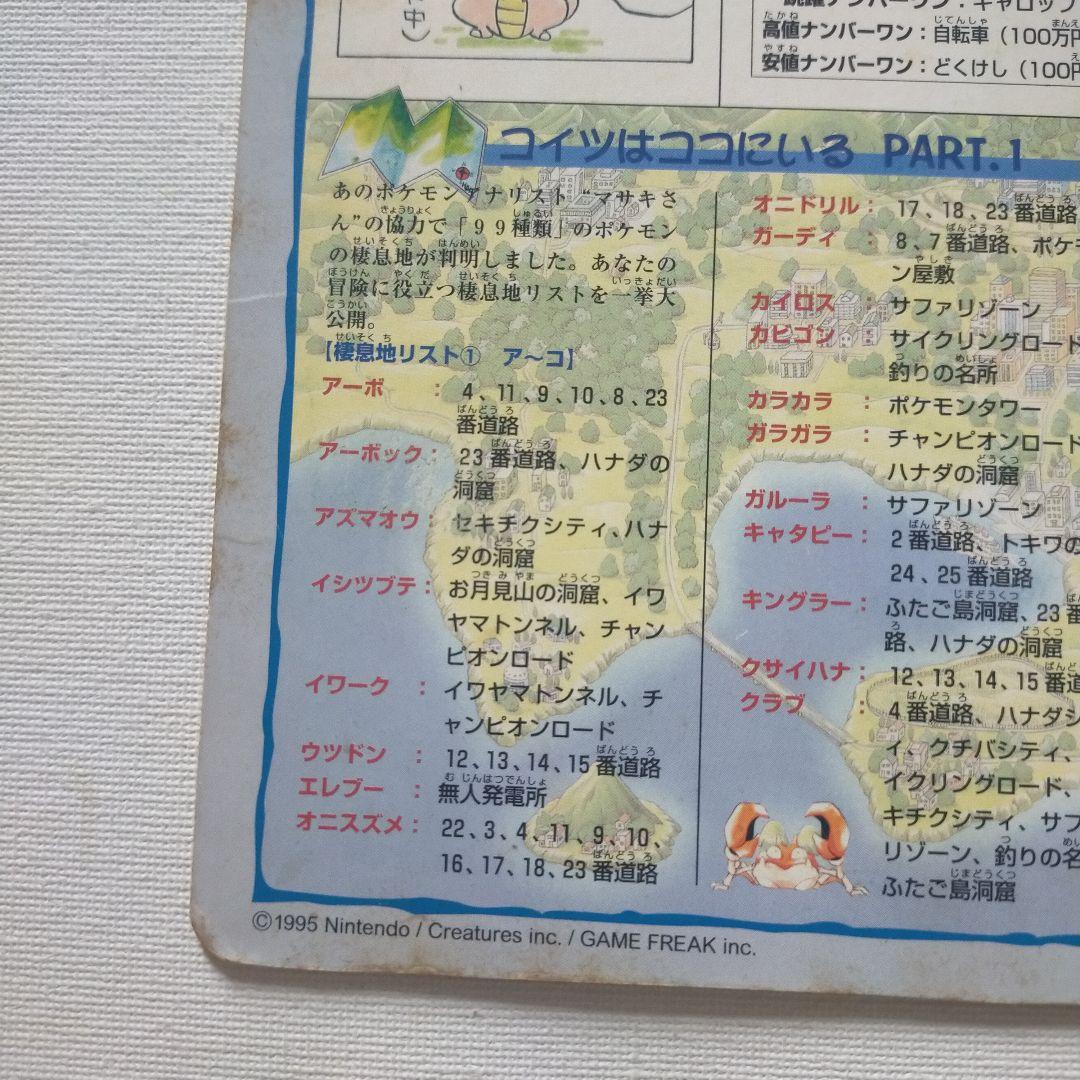 中)
ナンバーワン：ギャロップ
高値ナンバーワン：自転車（100万円
安値ナンバーワン：どくけし（100円
コイツはココにいる PART.1
あのポケモンアナリスト“マサキさ
ん”の協力で「99種類」のポケモン
の棲息地が判明しました。あなたの
冒険に役立つ棲息地リストを一挙大
公開。
【棲息地リスト① ア〜コ】
アーボ：4、11、9、10、8、23
番道路
アーボック：23番道路、ハナダの
洞窟
アズマオウ：セキチクシティ、ハナ
ダの洞窟
イシツブテ：お月見山の洞窟、イワ
ヤマトンネル、チャン
ピオンロード
イワーク：イワヤマトンネル、チ
ャンピオンロード
ウツドン：12、13、14、15番道路
エレブー：無人発電所
オニスズメ：22、3、4、11、9、10、
16、17、18、23番道路
オニドリル：17、18、23番道路
ガーディ：8、7番道路、ポケモ
ン屋敷
カイロス：サファリゾーン
カビゴン：サイクリングロード
釣りの名所
カラカラ：ポケモンタワー
ガラガラ：チャンピオンロード
ハナダの洞窟
ガルーラ：サファリゾーン
キャタピー：2番道路、トキワの
24、25番道路
キングラー：ふたご島洞窟、23番
路、ハナダの洞窟
クサイハナ：12、13、14、15番道
クラブ：4番道路、ハナダシ
ィ、クチバシティ、
イクリングロード、
キチクシティ、サフ
リゾーン、釣りの名
ふたご島洞窟
©1995 Nintendo / Creatures inc. / GAME FREAK inc.